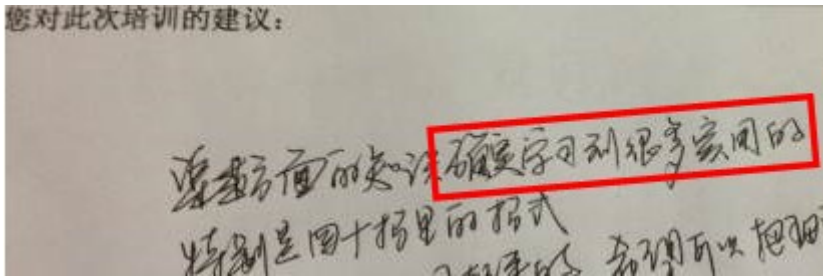 您对此次培训的建议：
渠道方面的知识确实学习到很多实用的
特别是四十招里的招式
希望可以把